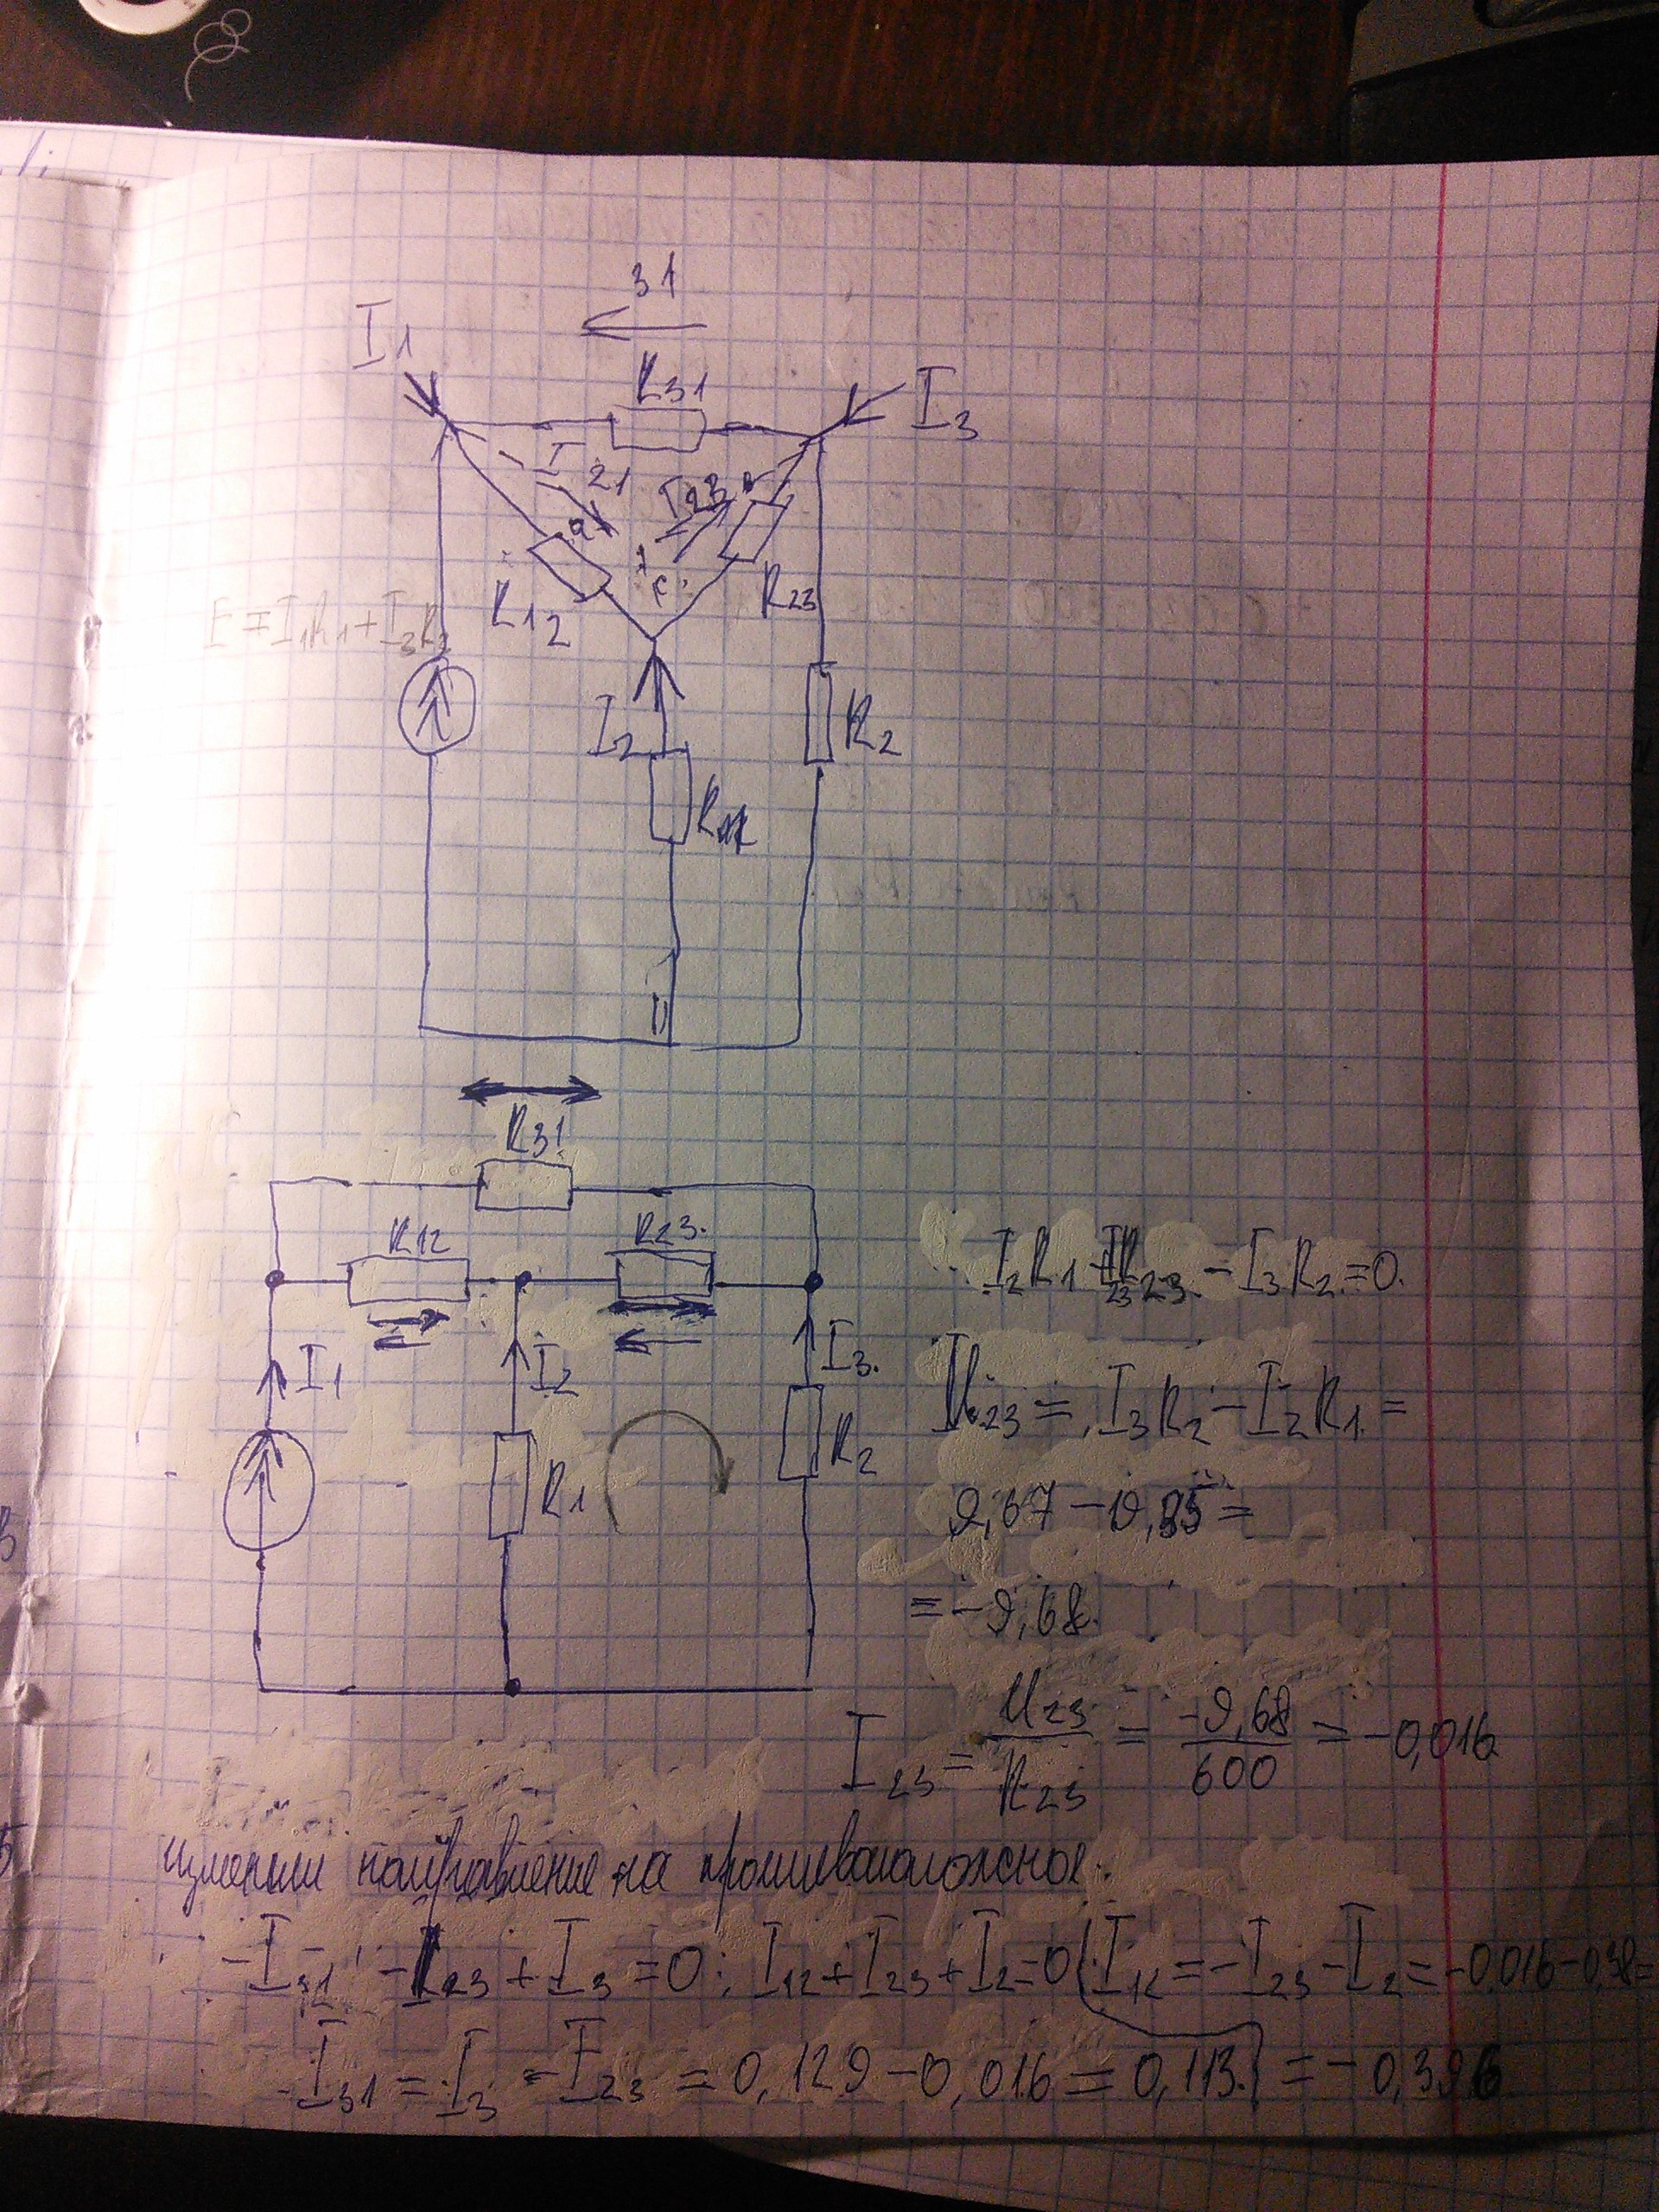 31
I1
R31
I3
I21
I23
R12
R23
E = I1R1 + I3R2
I2
R2
R31
R12
R23.
I1
I2
I3.
R1
R2
I2R1 + I23R23 - I3R2 = 0.
U23 = I3R2 - I2R1 =
9,67 - 19,35 =
= -9,68.
I23 = U23/R23 = -9,68/600 = -0,016
Изменим направление на противоположное.
-I31 - I23 + I3 = 0; I12 + I23 + I2 = 0 I12 = -I23 - I2 = -0,016 - 0,38 =
I31 = I3 - I23 = 0,129 - 0,016 = 0,113. = -0,396